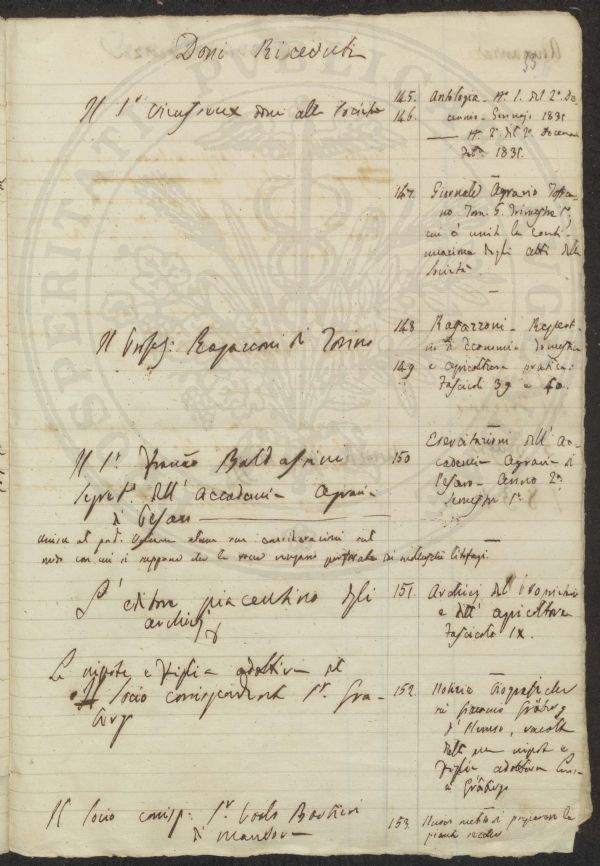 Doni Ricevuti
33
Il Sr. Vieusseux dona alla Società
145. Antologia. No. 1. del 2o. De-
146. cennio - Gennajo 1831
No. 2. del 2o. Decennio
Febo. 1831.
147. Giornale Agrario Tosca-
no. Tom. 5. Trimestre 1o,
cui è unita la conti-
nuazione degli atti della
Società.
Il Profes: Ragazzoni di Torino
148 Ragazzoni - Reperto-
rio d'economia domestica
149 e agricoltura pratica:
Fascicoli 39 e 40.
Il Sr. Baldassini
Segreto. dell' Accademia Agraria
di Pesaro
150 Esercitazioni dell' Ac-
cademia Agraria di
Pesaro - Anno 2o.
Semestre 1o.
unisce al alcune sue considerazioni sul
modo con cui si suppone che le rocce vengano perforate dai molluschi litofagi.
L' editore piacentino degli
archivj
151. Archivj del Proprietario
e dell' agricoltore
Fascicolo IX.
La nipote e Figlia adottiva del
Socio corrispondente Sr. Grå-
berg
152. Notizie Biografiche
di Giacomo Gråberg
d' Hemso, raccolte
dalla sua nipote e
Figlia adottiva
Gråberg
Il Socio corrisp: Sr. Barbieri
di Mantova
153. Nuovo metodo di preparare le
piante